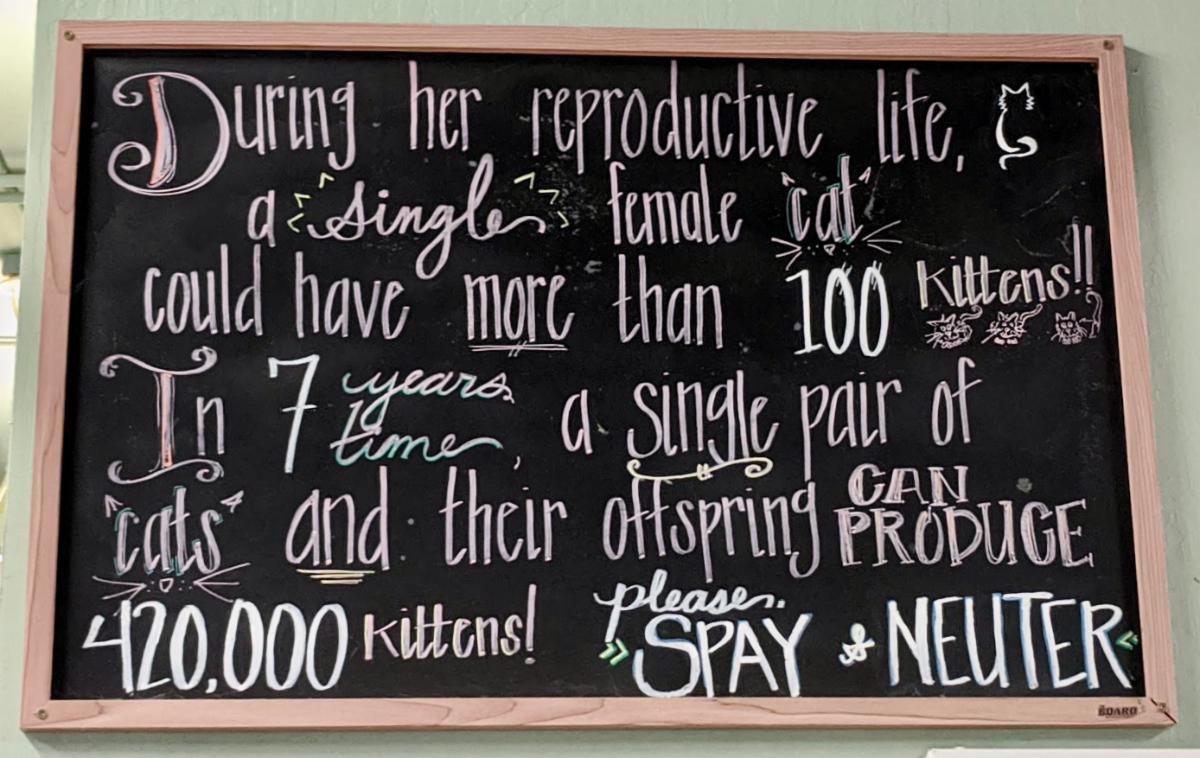 During her reproductive life,
a single female cat
could have more than 100 kittens!!
In 7 years time, a single pair of
cats and their offspring CAN PRODUCE
420,000 kittens! please.. SPAY & NEUTER
BOARD